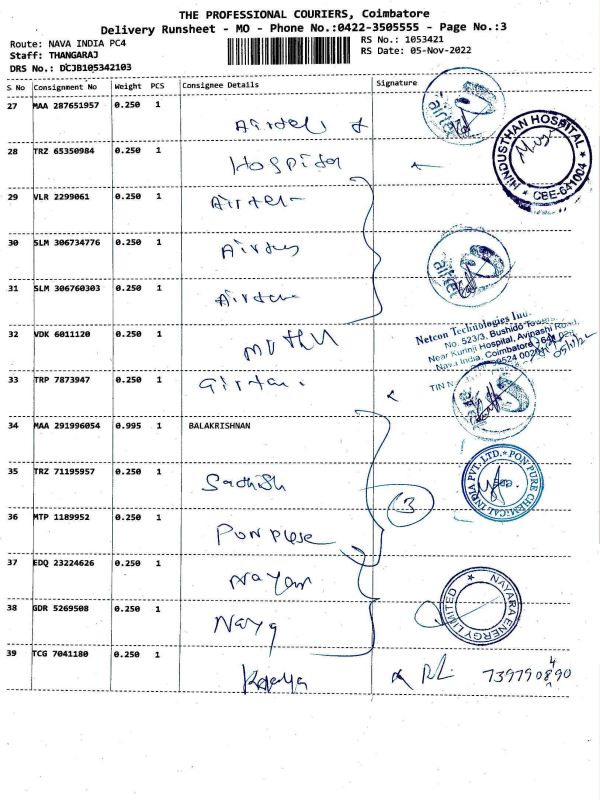 THE PROFESSIONAL COURIERS, Coimbatore
Delivery Runsheet - MO - Phone No.:0422-3505555 - Page No.:3
Route: NAVA INDIA PC4
RS No.: 1053421
Staff: THANGARAJ
RS Date: 05-Nov-2022
DRS No.: DCJB105342103
S No Consignment No Weight PCS Consignee Details Signature
27 MAA 287651957 0.250 1
Airtel
airtel
HINDUSTHAN HOSPITAL * CBE-641004 *
28 TRZ 65350984 0.250 1
Hospital
29 VLR 2299061 0.250 1
Airtel
30 SLM 306734776 0.250 1
Airtel
airtel
31 SLM 306760303 0.250 1
Airtel
Netcon Technologies Inc.
No. 523/3, Bushido Towers,
Near Kurinji Hospital, Avinashi Road,
Nava India, Coimbatore
TIN N
32 VDK 6011120 0.250 1
Muthu
33 TRP 7873947 0.250 1
Girtan
34 MAA 291996054 0.995 1 BALAKRISHNAN
35 TRZ 71195957 0.250 1
Sathish
3
PON PURE CHEMICAL INDIA PVT. LTD. *
36 MTP 1189952 0.250 1
Pon pure
37 EDQ 23224626 0.250 1
Nayar
NAYARA ENERGY LIMITED *
38 GDR 5269508 0.250 1
Naya
39 TCG 7041180 0.250 1